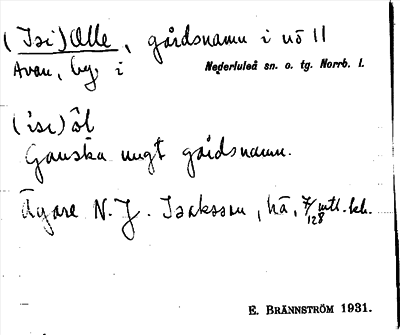 (Isi)Olle, gårdsnamn i nö 11
Avan, by, i Nederluleå sn. o. tg. Norrb. l.
(ísi)ôl
Ganska ungt gårdsnamn.
Ägare N. J. Isaksson, hä, 7/128 mtl. kh.
E. BRÄNNSTRÖM 1931.